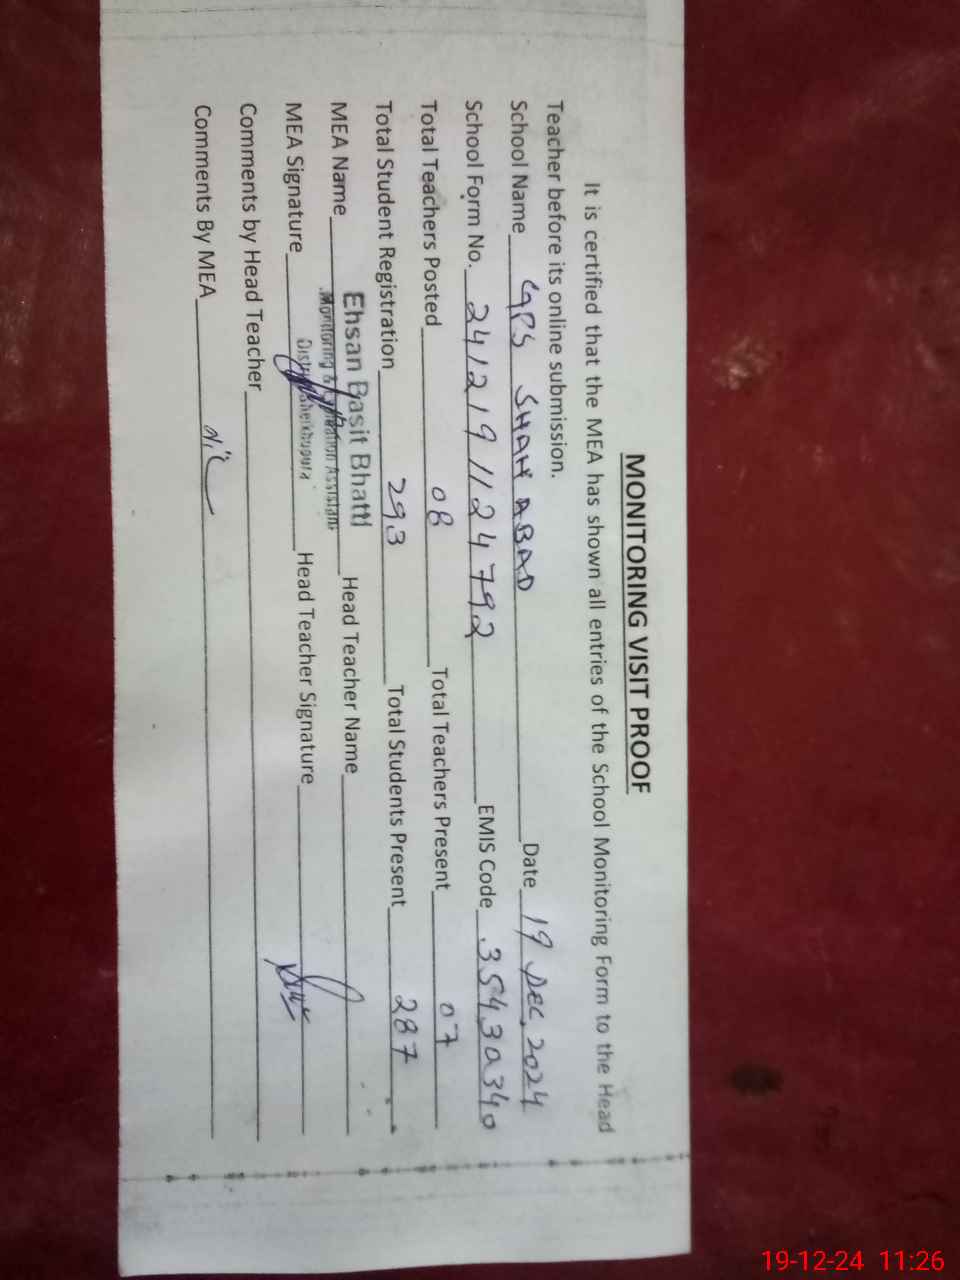 MONITORING VISIT PROOF
It is certified that the MEA has shown all entries of the School Monitoring Form to the Head
Teacher before its online submission.
School Name GPS SHAH ABAD Date 19 Dec, 2024
School Form No. 241219 1124792 EMIS Code 35430340
Total Teachers Posted 08 Total Teachers Present 07
Total Student Registration 293 Total Students Present 287
MEA Name Ehsan Basit Bhatti Head Teacher Name
Monitoring & Assistant
MEA Signature Sheikhupura Head Teacher Signature
Comments by Head Teacher
Comments By MEA
19-12-24 11:26